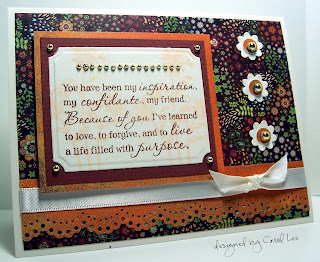 You have been my inspiration,
my confidante, my friend.
Because of you I've learned
to love, to forgive, and to live
a life filled with purpose.
designed by Carol Lee